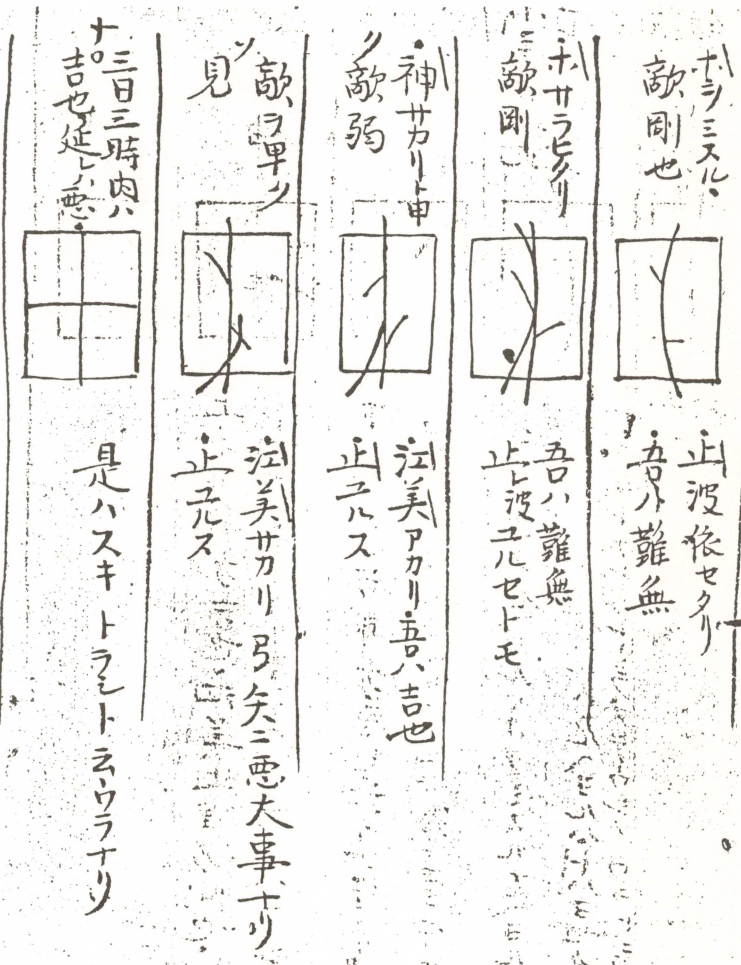 ホシミスル
敵剛也
止波依セタリ
吾ハ難無
ホサラヒクリ
敵剛
吾ハ難無
止レ波ユルセトモ
神サカリト申
リ敵弱
江美アカリ吾ハ吉也
止ユルス
敵ヲ卑ソ
見
江美サカリ弓矢ニ悪大事ナリ
止ユルス
三日三時内ハ
吉也延レハ悪
是ハスキトラシト云ウラナリ